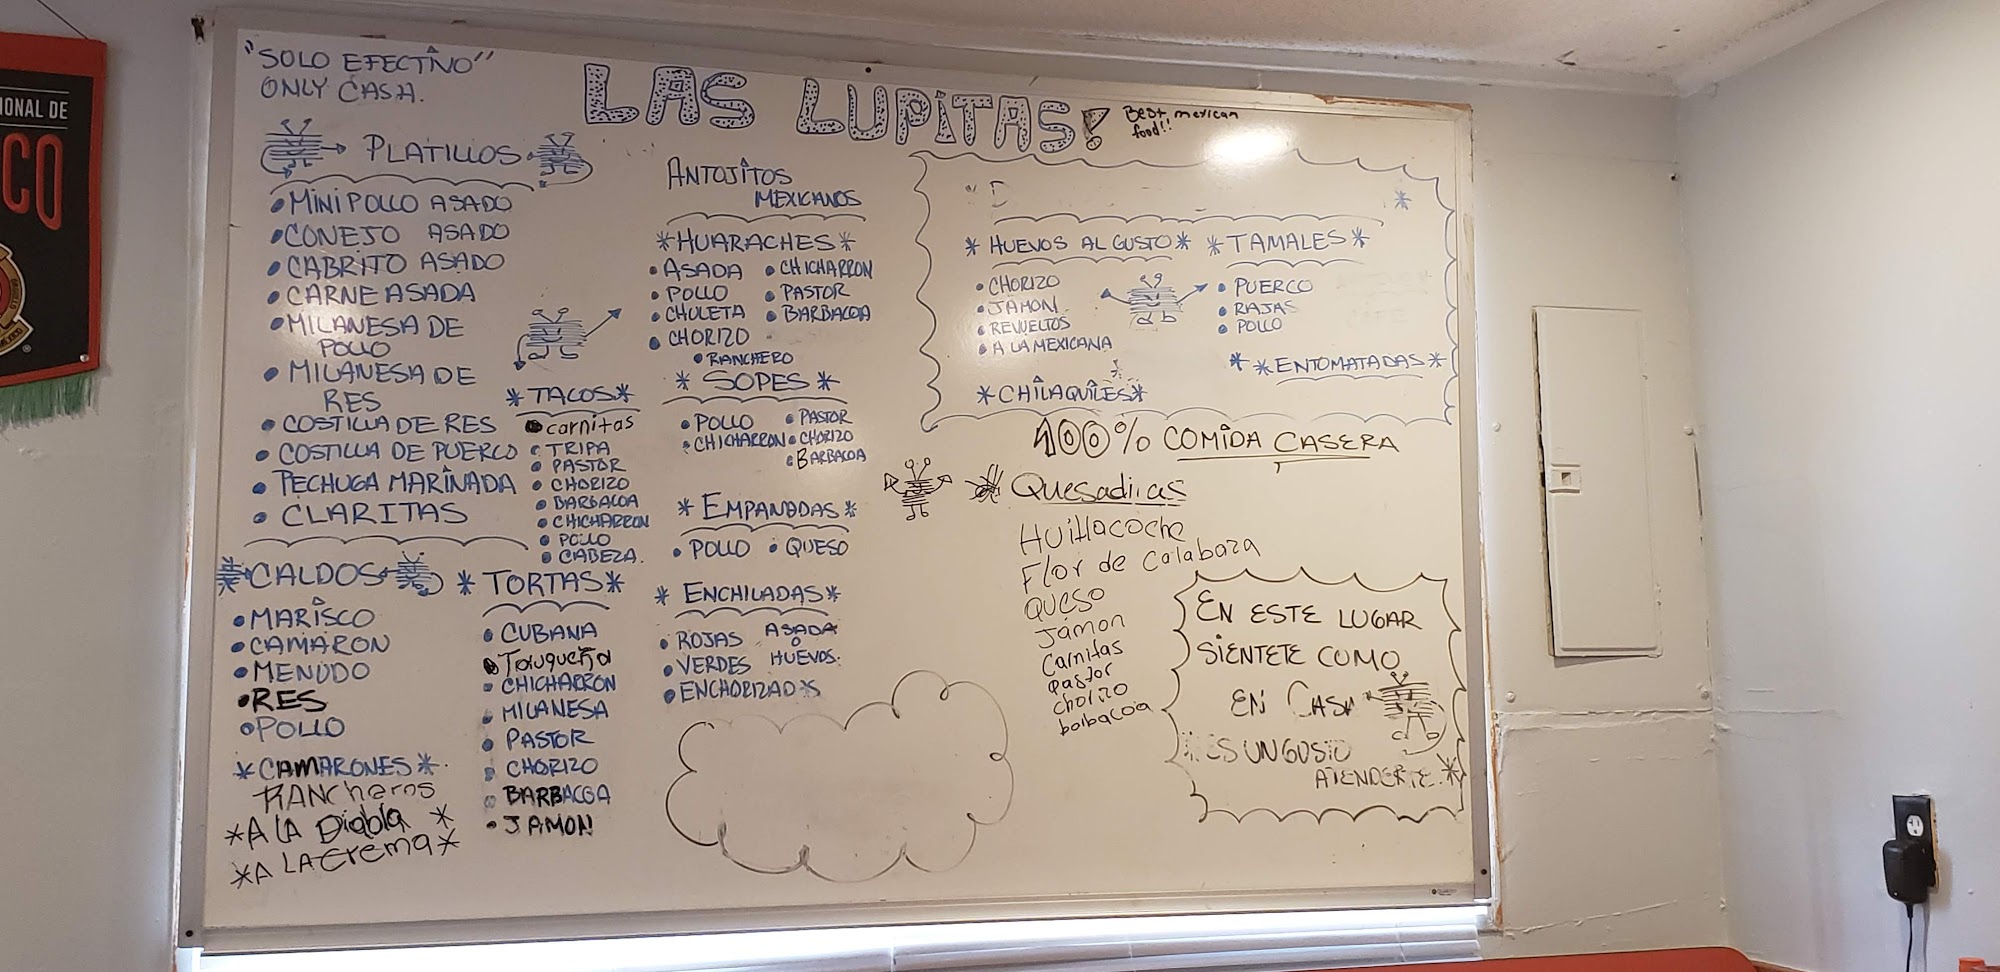 IONAL DE
CO
"SOLO EFECTIVO"
ONLY CASH.
LAS LUPITAS!
Best mexican
food!!
PLATILLOS
• MINI POLLO ASADO
• CONEJO ASADO
• CABRITO ASADO
• CARNE ASADA
• MILANESA DE
POLLO
• MILANESA DE
RES
• COSTILLA DE RES
• COSTILLA DE PUERCO
• PECHUGA MARINADA
• CLARITAS
CALDOS
• MARISCO
• CAMARON
• MENUDO
• RES
• POLLO
*CAMARONES*
RANCheros
*A LA Diabla *
*A LA Crema*
*TACOS*
• carnitas
• TRIPA
• PASTOR
• CHORIZO
• BARBACOA
• CHICHARRON
• POLLO
• CABEZA.
* TORTAS *
• CUBANA
• Tauqueña
• CHICHARRON
• MILANESA
• PASTOR
• CHORIZO
• BARBACOA
• JAMON
ANTOJITOS
MEXICANOS
*HUARACHES*
• ASADA • CHICHARRON
• POLLO • PASTOR
• CHULETA • BARBACOA
• CHORIZO
• RANCHERO
* SOPES *
• POLLO • PASTOR
• CHICHARRON • CHORIZO
• BARBACOA
* EMPANADAS *
• POLLO • QUESO
* ENCHILADAS *
• ROJAS ASADA
O
• VERDES HUEVOS.
• ENCHORIZADAS
"D
* HUEVOS AL GUSTO *
• CHORIZO
• JAMON
• REVUELTOS
• A LA MEXICANA
*CHILAQUILES*
* TAMALES *
• PUERCO
• RAJAS
• POLLO
* *ENTOMATADAS*
100% COMIDA CASERA
Quesadillas
Huitlacoche
Flor de calabaza
QUESO
Jamon
Carnitas
pastor
chorizo
barbacoa
EN ESTE LUGAR
SIENTETE COMO
EN CASA
ES UN GUSTO
ATENDERTE.*